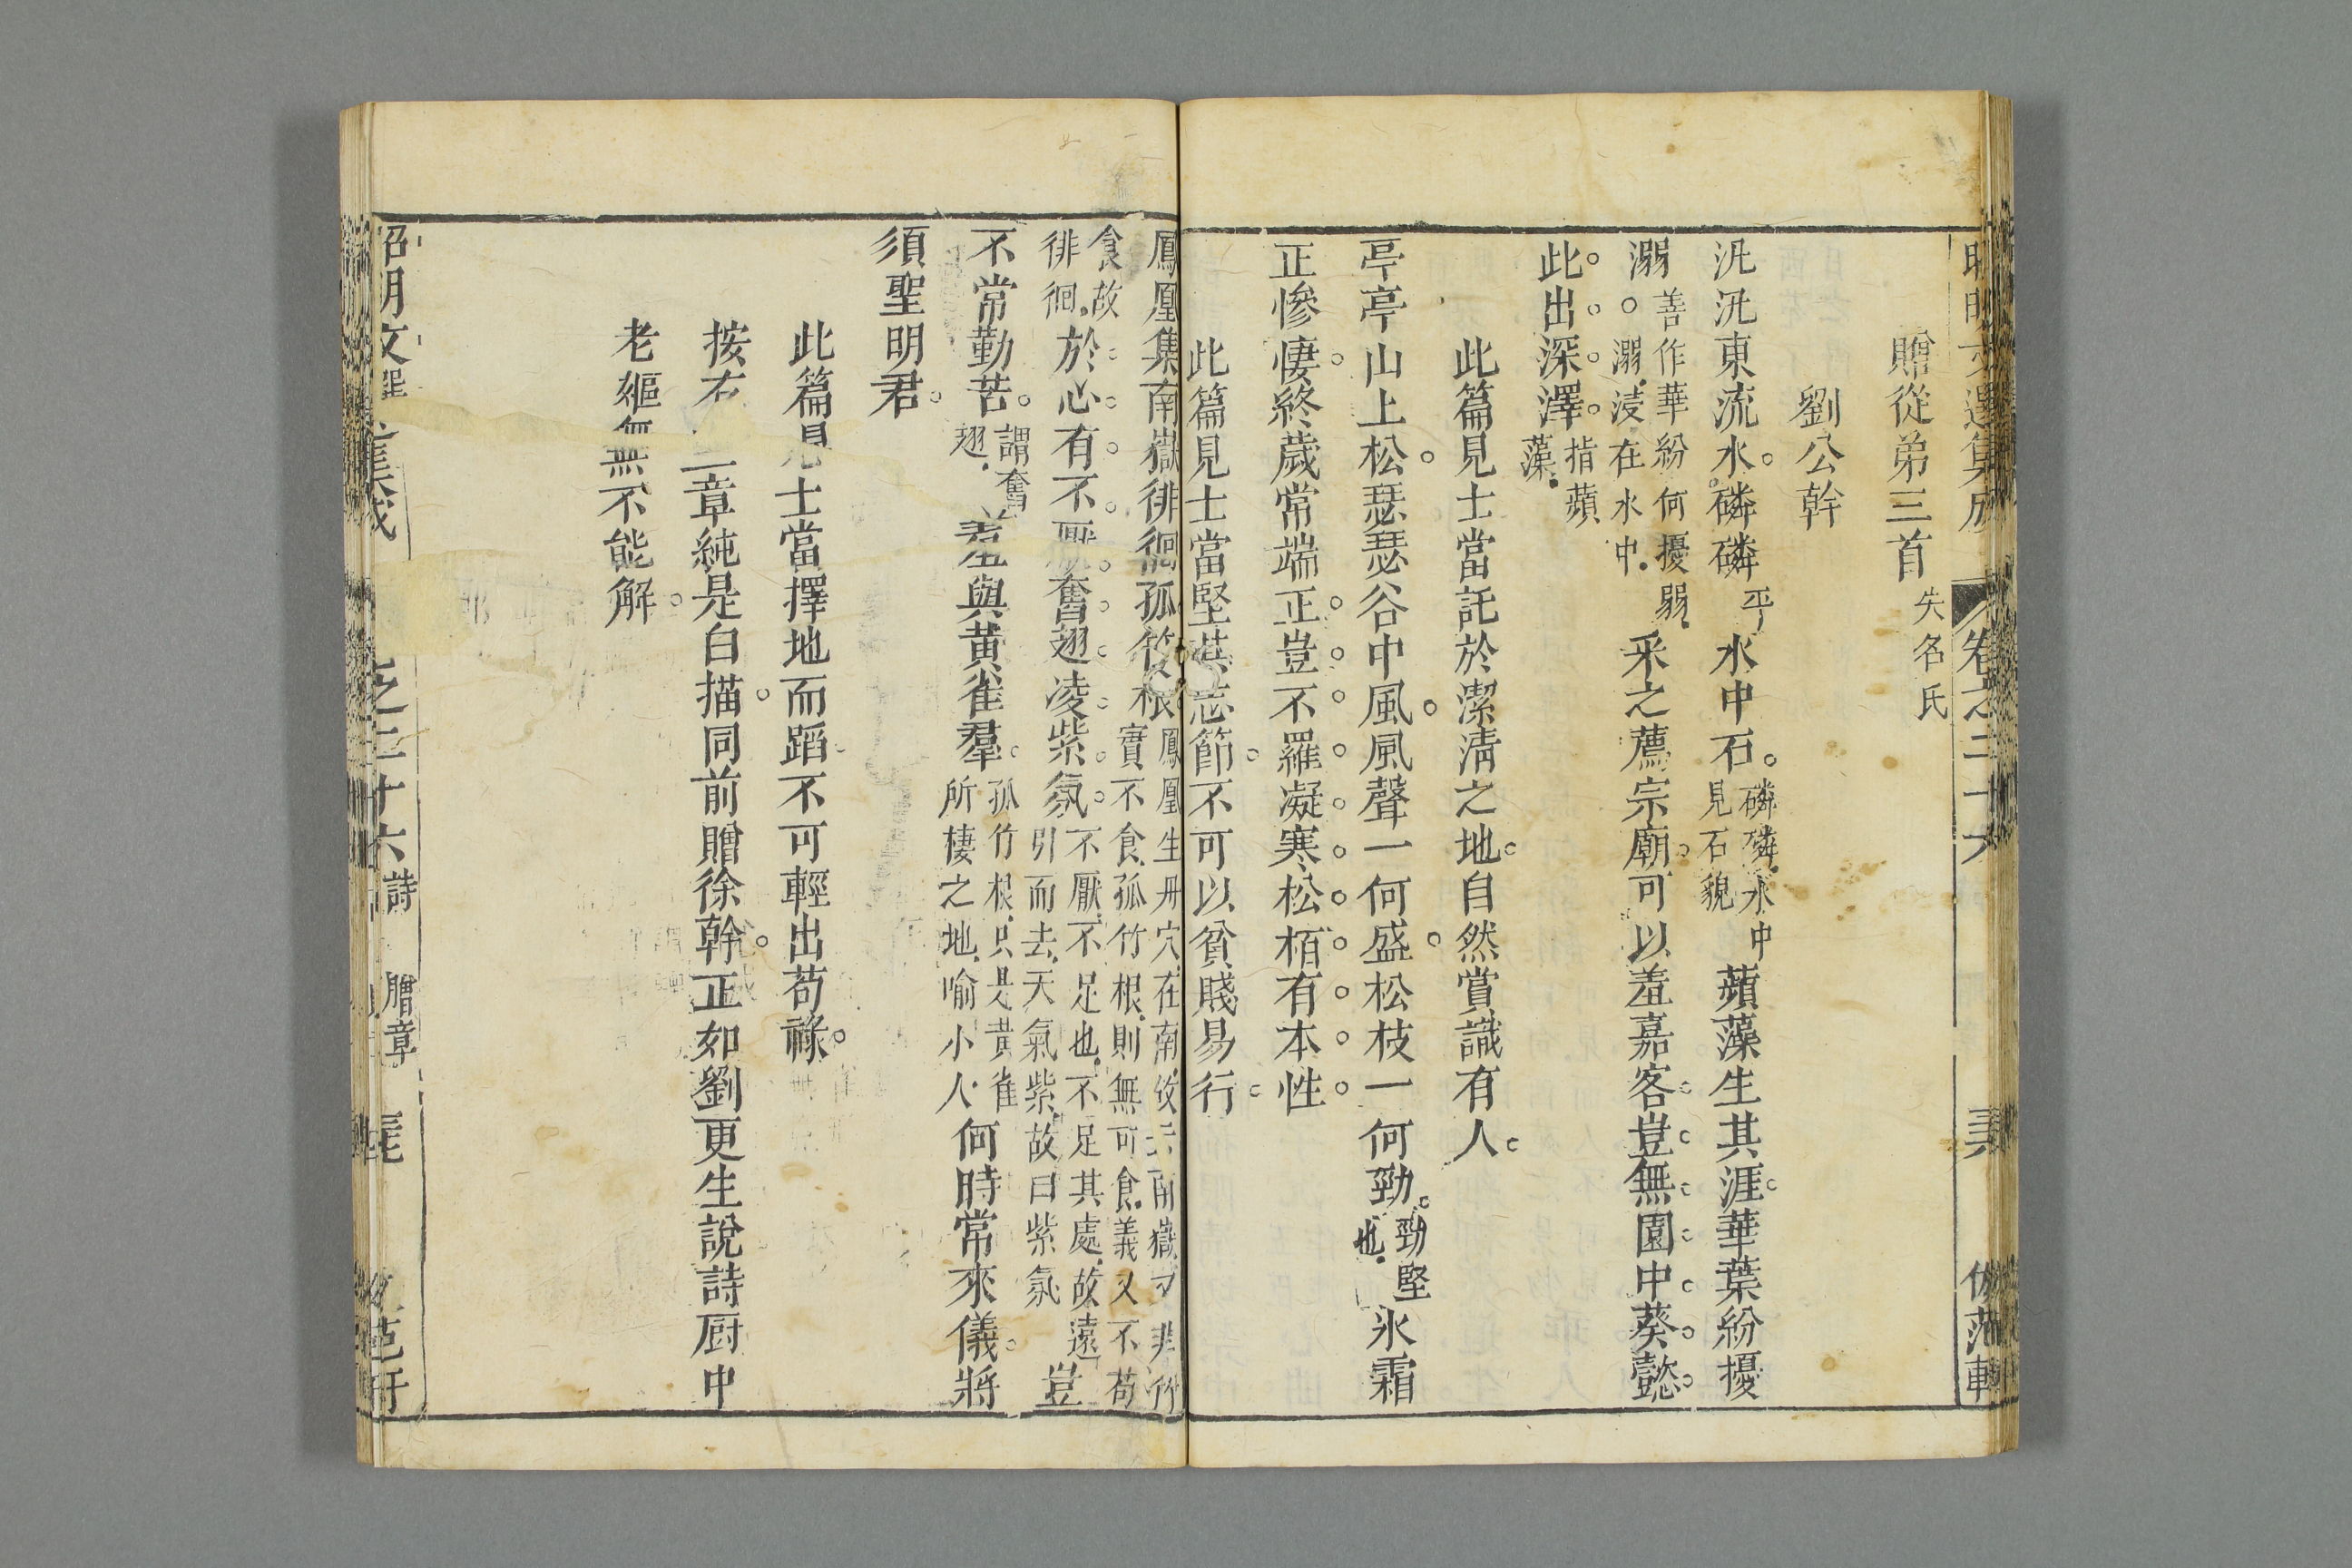 贈從弟三首 失名氏
劉公幹
汎汎東流水磷磷 平 水中石 磷磷水中見石貌 蘋藻生其涯華葉紛擾
溺 善作華紛何擾弱溺浸在水中 采之薦宗廟可以羞嘉客豈無園中葵懿
此出深澤 指蘋藻
此篇見士當託於潔淸之地自然賞識有人
亭亭山上松瑟瑟谷中風風聲一何盛松枝一何勁 勁堅也 氷霜
正慘悽終歲常端正豈不羅凝寒松栢有本性
此篇見士當堅其志節不可以貧賤易行
鳳凰集南嶽徘徊孤竹根 鳳凰生丹穴在南故云南嶽 非竹
實不食孤竹根則無可食義又不苟
食故徘徊 於心有不厭奮翅凌紫氛 不厭不足也不足其處故遠引而去天氣紫故曰紫氛 豈
不常勤苦 謂奮翅 羞與黃雀羣 孤竹根只是黃雀所棲之地喻小人 何時常來儀將
須聖明君
此篇見士當擇地而蹈不可輕出苟祿
按右 章純是白描同前贈徐幹正如劉更生說詩厨中
老嫗無不能解
昭明文選集成 之二十六 詩 贈章